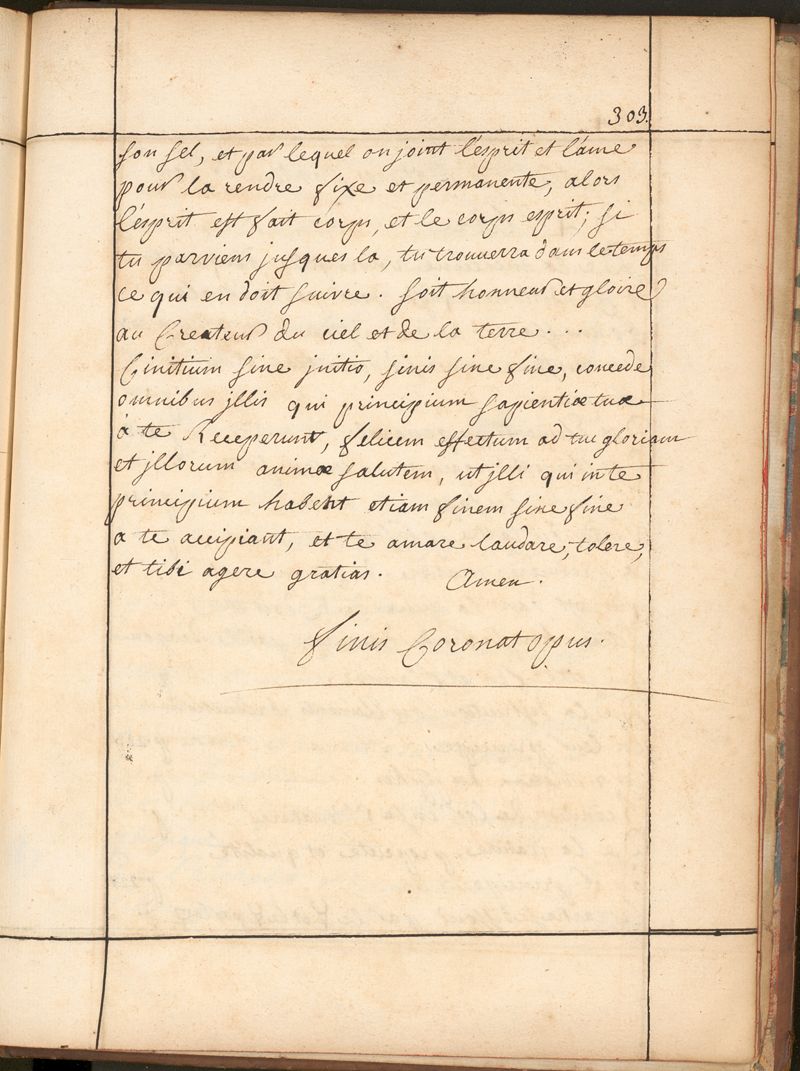 303.
son sel, et par lequel on joint l'esprit et l'ame
pour la rendre fixe et permanente, alors
l'esprit est fait corps, et le corps esprit; si
tu parviens jusques la, tu trouverra dans le temps
ce qui en doit suivre. soit honneur et gloire
au Createur du ciel et de la terre...
Initium sine initio, finis sine fine, concede
omnibus jllis qui principium sapientiæ tuæ
à te Receperunt, felicem effectum ad tui gloriam
et jllorum animæ salutem, ut jlli qui in te
principium habent etiam finem sine fine
a te accipiant, et te amare laudare, colere,
et tibi agere gratias. Amen.
finis Coronat opus.